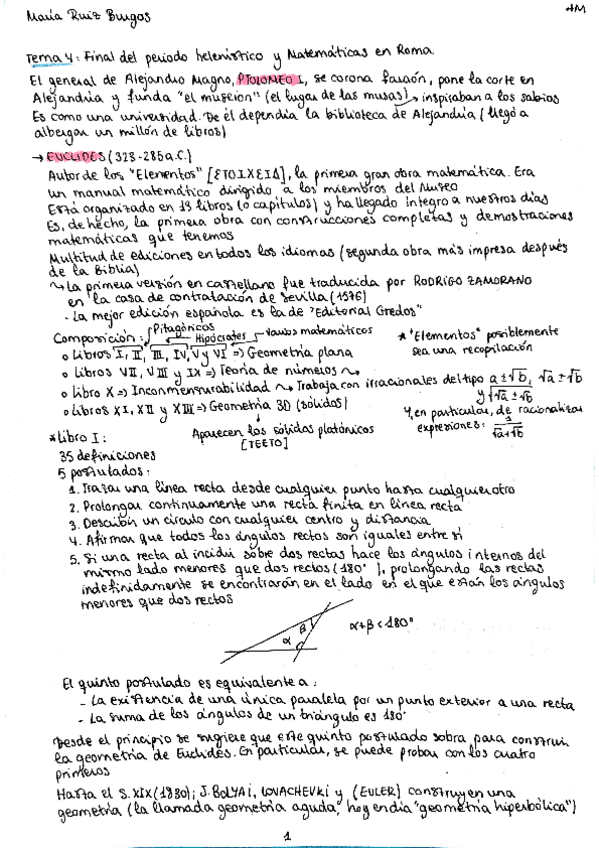 María Ruiz Burgos
HM
Tema 4: Final del periodo helenístico y Matemáticas en Roma.
El general de Alejandro Magno, PTOLOMEO I, se corona faraón, pone la corte en
Alejandría y funda "el museion" (el lugar de las musas) → inspiraban a los sabios
Es como una universidad. De él dependía la biblioteca de Alejandría (llegó a
albergar un millón de libros)
→ EUCLIDES (328-285 a.C.)
Autor de los "Elementos" [ΣTOIXEIΔ], la primera gran obra matemática. Era
un manual matemático dirigido a los miembros del Museo
Está organizado en 13 libros (o capítulos) y ha llegado íntegro a nuestros días
Es, de hecho, la primera obra con construcciones completas y demostraciones
matemáticas que tenemos
Multitud de ediciones en todos los idiomas (segunda obra más impresa después
de la Biblia)
↝ La primera versión en castellano fue traducida por RODRIGO ZAMORANO
en la casa de contratación de Sevilla (1576)
- La mejor edición española es la de "Editorial Gredos"
Composición: Pitagóricos Hipócrates Varios matemáticos
* "Elementos" posiblemente
sea una recopilación
o Libros I, II, III, IV, V y VI => Geometría plana
o Libros VII, VIII y IX => Teoría de números
o Libro X => Inconmensurabilidad ↝ Trabaja con irracionales del tipo a±√b, √a±√b
y √(√a±√b)
o Libros XI, XII y XIII => Geometría 3D (sólidos)
Y, en particular, de racionalizar
expresiones: 1/(√a±√b)
Aparecen los sólidos platónicos
[TEETO]
*Libro I:
35 definiciones
5 postulados:
1. Trazar una línea recta desde cualquier punto hasta cualquier otro
2. Prolongar continuamente una recta finita en línea recta
3. Describir un círculo con cualquier centro y distancia
4. Afirmar que todos los ángulos rectos son iguales entre sí
5. Si una recta al incidir sobre dos rectas hace los ángulos internos del
mismo lado menores que dos rectos (180°), prolongando las rectas
indefinidamente se encontrarán en el lado en el que están los ángulos
menores que dos rectos
α β
α+β < 180°
El quinto postulado es equivalente a:
- La existencia de una única paralela por un punto exterior a una recta
- La suma de los ángulos de un triángulo es 180°
Desde el principio se sugiere que este quinto postulado sobra para construir
la geometría de Euclides. En particular, se puede probar con los cuatro
primeros
Hasta el S. XIX (1830); J. BOLYAI, LOVACHEVKI y (EULER) construyen una
geometría (la llamada geometría aguda, hoy en día "geometría hiperbólica")
1